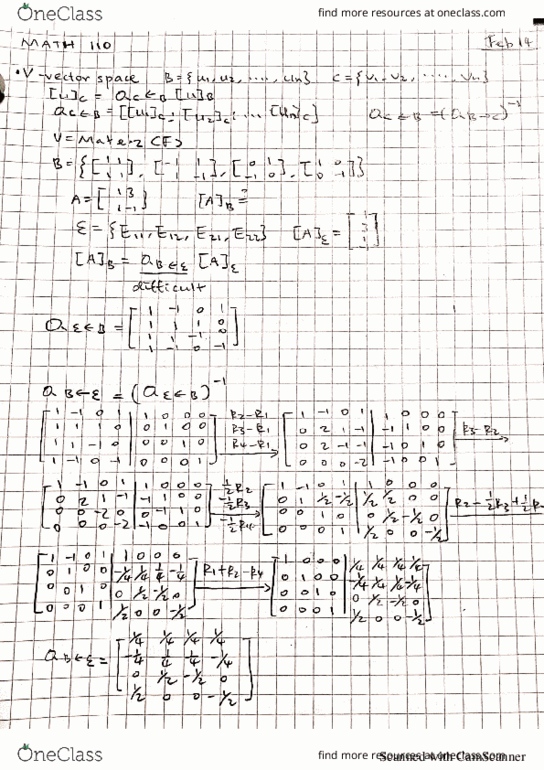 OneClass
find more resources at oneclass.com
MATH 110 Feb 14
• V - vector space B = {u1, u2, ...., un} C = {v1, v2, ....., vn}
[u]c = ac←B [u]B
ac←B = [[u1]c ; [u2]c ; ... [un]c] ac←B = (aB←c)^-1
B = {[1 1
1 1], [-1 1
1 -1], [0 1
-1 0], [1 0
0 -1]}
A = [1 3
1 -1] [A]B = ?
ε = {E11, E12, E21, E22} [A]ε =
[A]B = aB←ε [A]ε
difficult
aε←B = [1 -1 0 1
1 1 1 0
1 1 -1 0
1 -1 0 -1]
aB←ε = (aε←B)^-1
[1 -1 0 1 | 1 0 0 0
1 1 1 0 | 0 1 0 0
1 1 -1 0 | 0 0 1 0
1 -1 0 -1 | 0 0 0 1]
R2-R1
R3-R1
R4-R1
[1 -1 0 1 | 1 0 0 0
0 2 1 -1 | -1 1 0 0
0 2 -1 -1 | -1 0 1 0
0 0 0 -2 | -1 0 0 1]
R3-R2
[1 -1 0 1 | 1 0 0 0
0 2 1 -1 | -1 1 0 0
0 0 -2 0 | 0 -1 1 0
0 0 0 -2 | -1 0 0 1]
1/2 R2
-1/2 R3
-1/2 R4
[1 -1 0 1 | 1 0 0 0
0 1 1/2 -1/2 | 1/2 1/2 0 0
0 0 1 0 | 0 1/2 -1/2 0
0 0 0 1 | 1/2 0 0 -1/2]
[1 -1 0 1 | 1 0 0 0
0 1 0 0 | -1/4 1/4 1/4 -1/4
0 0 1 0 | 0 1/2 -1/2 0
0 0 0 1 | 1/2 0 0 -1/2]
R1+R2-R4
[1 0 0 0 | 1/4 1/4 1/4 1/4
0 1 0 0 | -1/4 1/4 1/4 -1/4
0 0 1 0 | 0 1/2 -1/2 0
0 0 0 1 | 1/2 0 0 -1/2]
aB←ε = [1/4 1/4 1/4 1/4
-1/4 1/4 1/4 -1/4
0 1/2 -1/2 0
1/2 0 0 -1/2]
OneClass
find more resources at oneclass.com
Scanned with CamScanner